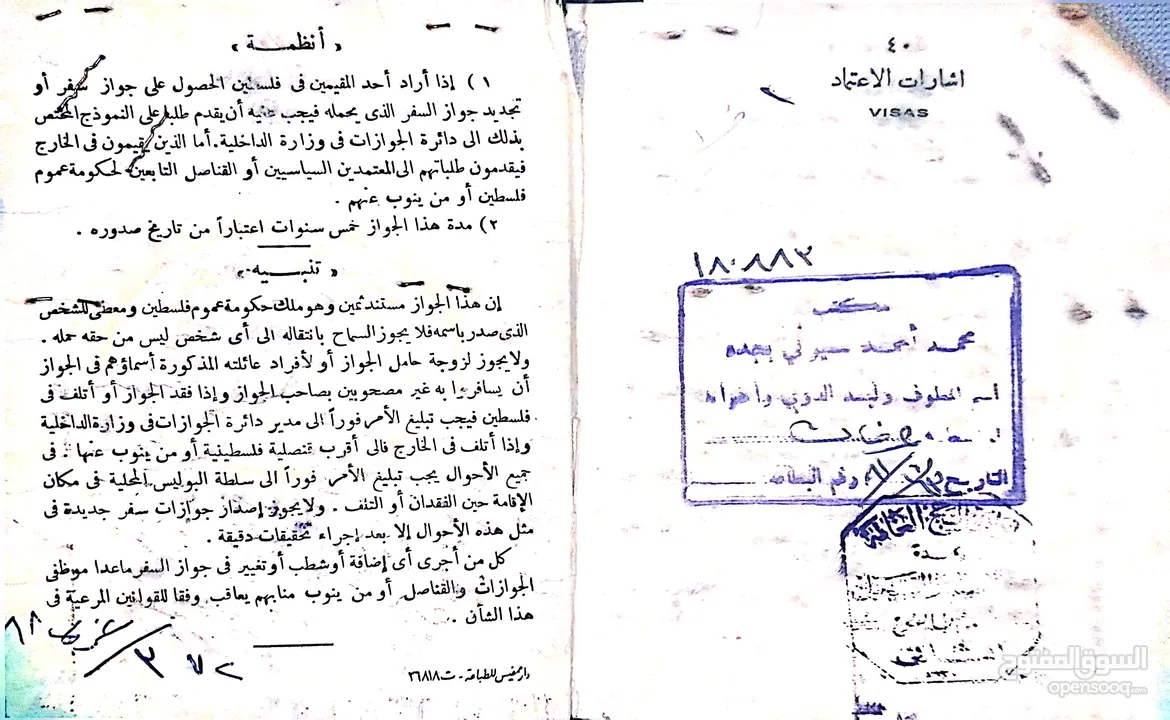 « أنظمة »
١) إذا أراد أحد المقيمين فى فلسطين الحصول على جواز سفر أو
تجديد جواز السفر الذى يحمله فيجب عليه أن يقدم طلبا على النموذج المختص
بذلك الى دائرة الجوازات فى وزارة الداخلية. أما الذين يقيمون فى الخارج
فيقدمون طلباتهم الى المعتمدين السياسيين أو القناصل التابعين لحكومة عموم
فلسطين أو من ينوب عنهم .
٢) مدة هذا الجواز خمس سنوات اعتباراً من تاريخ صدوره .
« تنبيه »
إن هذا الجواز مستند ثمين وهو ملك حكومة عموم فلسطين ومعطى للشخص
الذى صدر باسمه فلا يجوز السماح بانتقاله الى أى شخص ليس من حقه حمله .
ولا يجوز لزوجة حامل الجواز أو لأفراد عائلته المذكورة أسماؤهم فى الجواز
أن يسافروا به غير مصحوبين بصاحب الجواز وإذا فقد الجواز أو أتلف فى
فلسطين فيجب تبليغ الأمر فوراً الى مدير دائرة الجوازات فى وزارة الداخلية
وإذا أتلف فى الخارج فالى أقرب قنصلية فلسطينية أو من ينوب عنها . فى
جميع الأحوال يجب تبليغ الأمر فوراً الى سلطة البوليس المحلية فى مكان
الإقامة حين الفقدان أو التلف . ولا يجوز إصدار جوازات سفر جديدة فى
مثل هذه الأحوال إلا بعد إجراء تحقيقات دقيقة .
كل من أجرى أى إضافة أو شطب أو تغيير فى جواز السفر ماعدا موظفى
الجوازات والقناصل أو من ينوب منابهم يعاقب وفقا للقوانين المرعية فى
هذا الشأن .
٣ ٧٢
دار مفيس للطباعة - ت ٣٦٨١٨
٤٠
اشارات الاعتماد
VISAS
١٨٠٨٨٣
مكتب
محمد أحمد بجده
اسم المطوف وليد الدوبي واخوانه
التاريخ رقم البطاقة
جدة
السوق المفتوح
opensooq.com